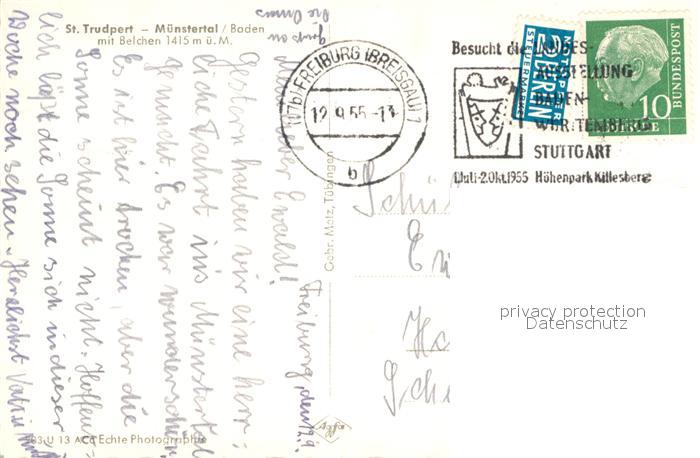 St. Trudpert – Münstertal / Baden
mit Belchen 1415 m ü. M.
(17b) FREIBURG (BREISGAU) 1
12.9.55-13
b
Besucht die LANDES-
AUSSTELLUNG
BADEN-
WÜRTTEMBERG
STUTTGART
2.Okt.1955 Höhenpark Killesberg
NOTOPFER
2 BERLIN
STEUERMARKE
DEUTSCHE
BUNDESPOST
10
Gebr. Metz, Tübingen
Freiburg, den 12.9.
Mein lieber Ewald!
Gestern haben wir eine herr-
liche Fahrt ins Münstertal
gemacht. Es war wunderschön
Es ist hier trocken, aber die
Sonne scheint nicht. Hoffent-
lich läßt die Sonne sich in dieser
Woche noch sehen. Herzlichst Vati u.
Agfa
U 13 Echte Photographie
privacy protection
Datenschutz